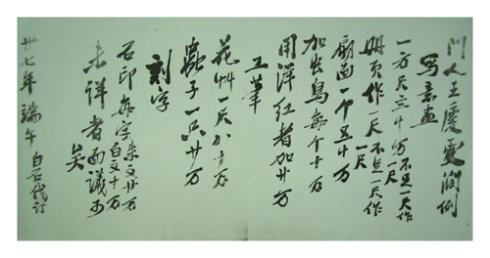 門人王慶雯潤例
寫意畫
一方尺六十万不足一尺作一尺
冊頁作一尺不足一尺作一尺
扇面一个五十万
加虫鳥每个十万
用洋红者加廿万
工筆
花艸一尺八十万
蟲子一只廿万
刻字
石印每字朱文廿万白文十万
未詳者面議可矣
卅七年端午白石代订